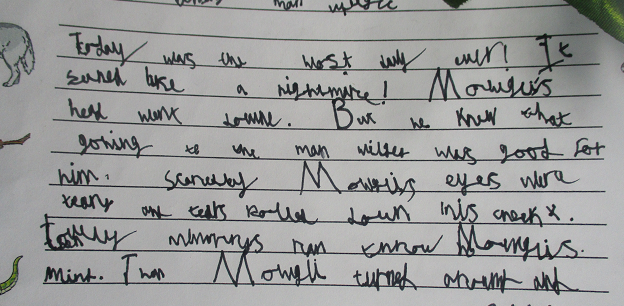 man
today was the worst day ever! It
seemed like a nightmare! Mowglis
head went down. But he knew that
goning to the man was good for
him. Mowglis eyes were
teary and tears rolled down his cheeks.
ran Mowglis.
Mowgli turned around and